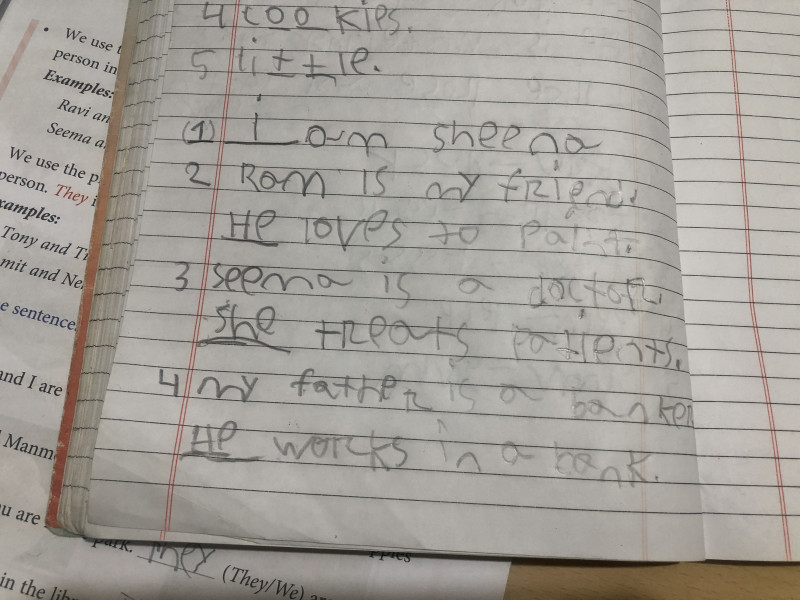 4 cookies.
5 little.
(1) i am sheena
2 Ram is my friend.
He loves to paint.
3 seema is a doctor.
she treats patients.
4 my father is a banker
He works in a bank.
• We use
person in
Examples:
Ravi an
Seema a
We use the p
person. They i
xamples:
Tony and Ti
mit and Ne
e sentence
and I are
Manm
u are
park. They (They/We) ar
in the lib